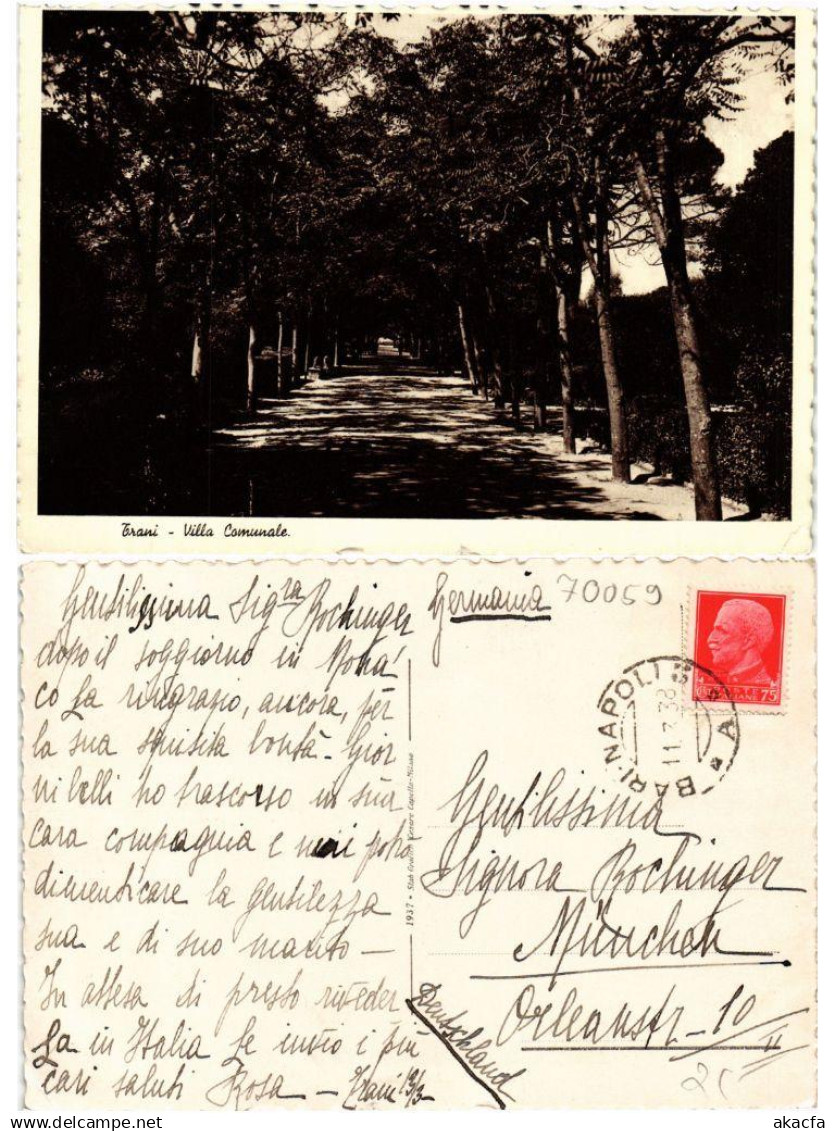 Trani - Villa Comunale.
Gentilissima Sig.ra Bochinger
dopo il soggiorno in Mona
co La ringrazio, ancora, per
la sua squisita bontà - Gior
ni belli ho trascorso in sua
cara compagnia e mai potrò
dimenticare la gentilezza
sua e di suo marito -
In attesa di presto riveder
La in Italia Le invio i più
cari saluti Rosa - Trani
1937 • Stab. Cesare Capello-Milano
Germania 70059
BARI NAPOLI A
11.3.38
75
Gentilissima
Signora Bochinger
München
Orleanstr - 10/II
Deutschland
25
www.akacfa.com
akacfa